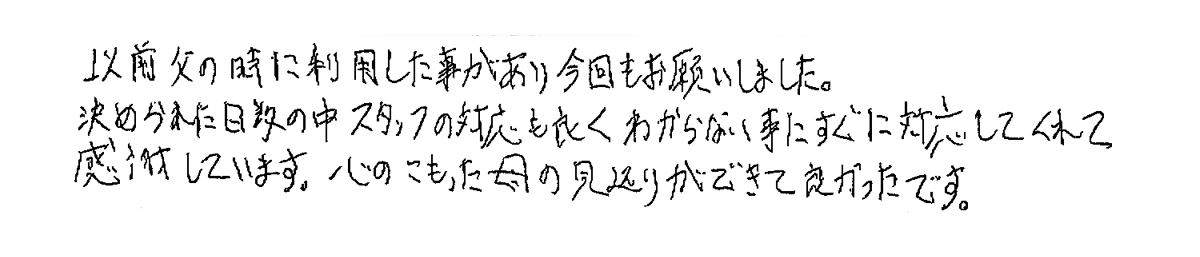 以前父の時に利用した事があり今回もお願いしました。
決められた日数の中スタッフの対応も良くわからない事にすぐに対応してくれて
感謝しています。心のこもった母の見送りができて良かったです。